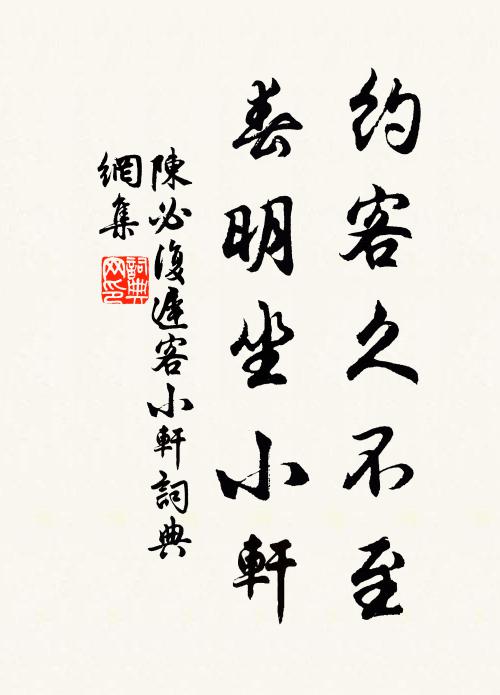 約客久不至
春明坐小軒
陳必復遲客小軒詞典
網集
詞典網印